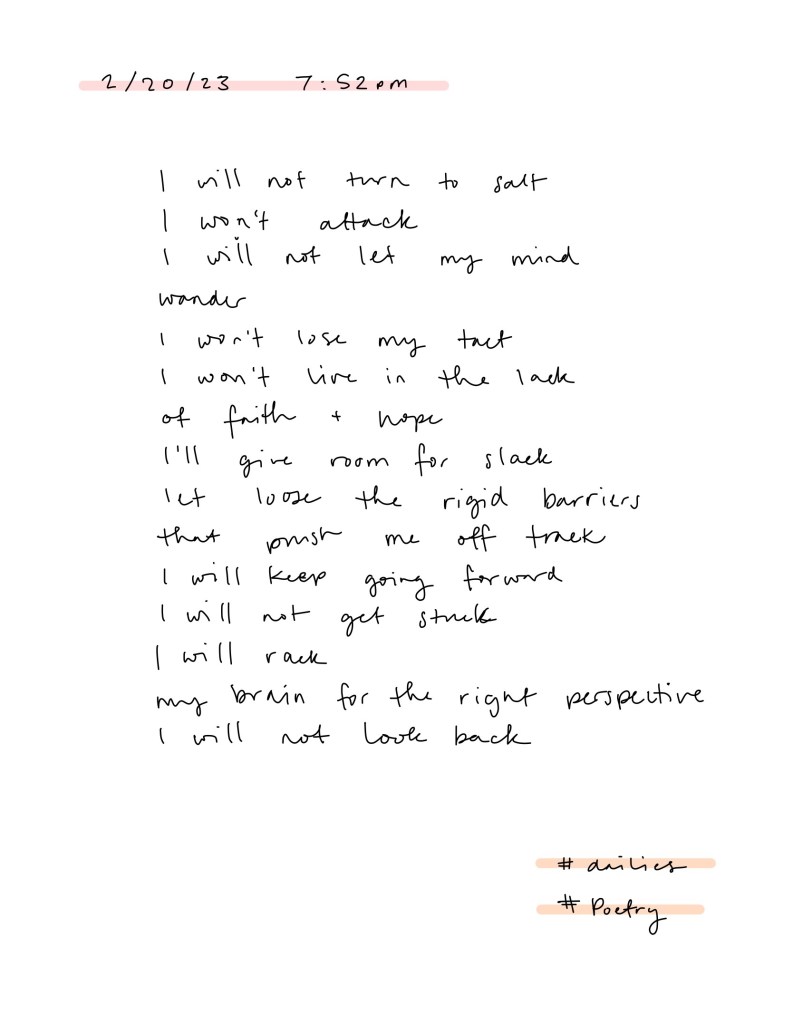 2/20/23 7:52pm
I will not turn to salt
I won't attack
I will not let my mind
wander
I won't lose my tact
I won't live in the lack
of faith + hope
I'll give room for slack
let loose the rigid barriers
that push me off track
I will keep going forward
I will not get stuck
I will rack
my brain for the right perspective
I will not look back
# dailies
# Poetry